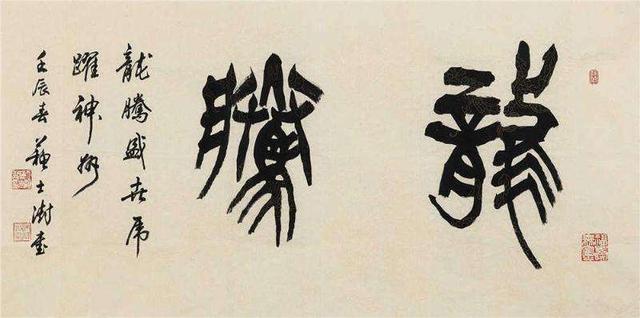 龍騰
龍騰盛世虎
躍神州
壬辰春蘇士澍書